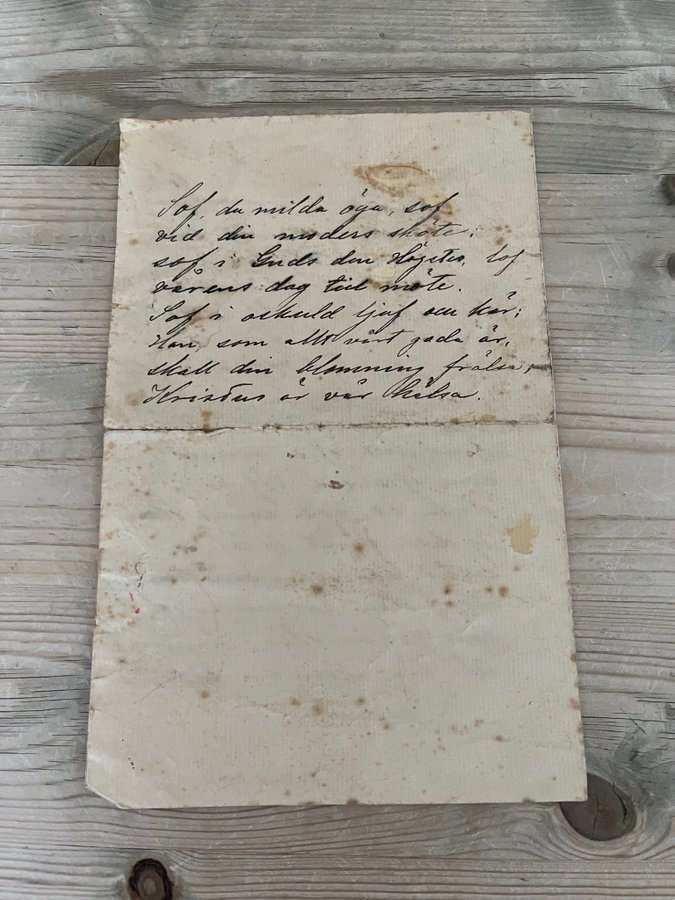 Sof, du milda öga, sof
vid din moders sköte;
sof i Guds den Högstes lof
vårens dag till möte.
Sof i oskuld ljuf och kär;
Han, som allt vårt goda är,
skall din blomning frälsa,
Kristus är vår hälsa.